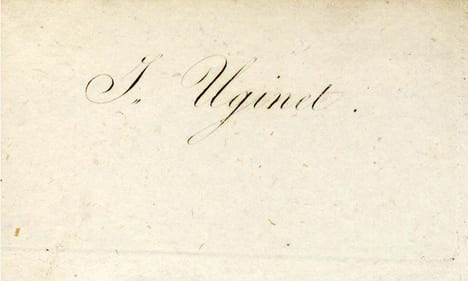 J. Uginet.